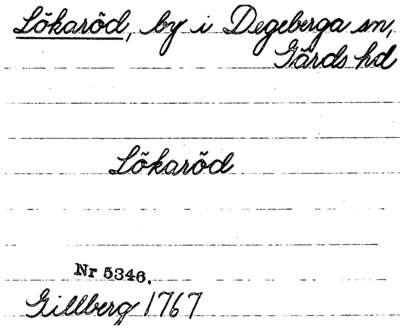 Lökaröd, by i Degeberga sn,
Gärds hd
Lökaröd
Nr 5346.
Gillberg 1767